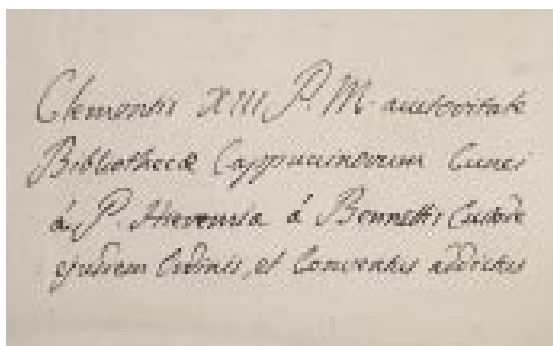 Clementis XIII P. M. auctoritate
Bibliothecæ Cappuccinorum Cunei
à P. Hieremia à Bennetti Custode
ejusdem Ordinis, et Conventus addictus